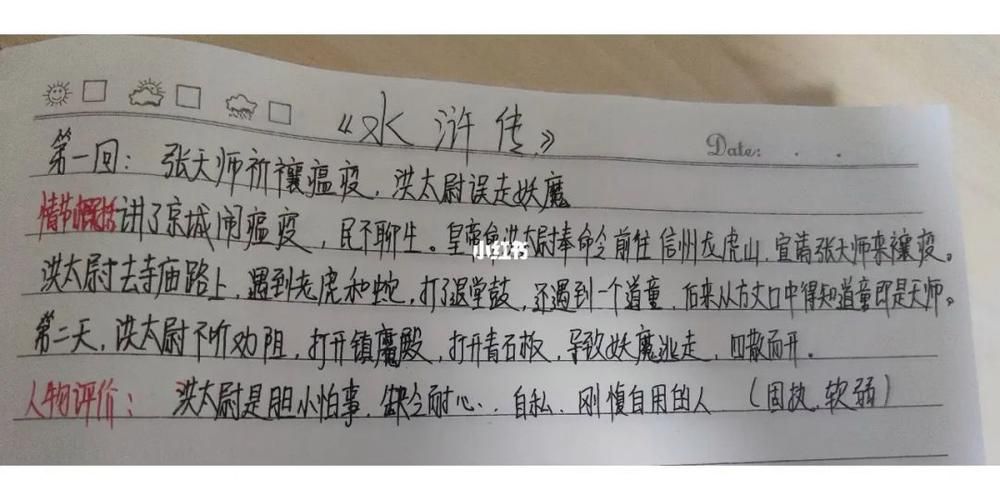 《水浒传》
Date:
第一回：张天师祈禳瘟疫，洪太尉误走妖魔
情节概括 讲了京城闹瘟疫，民不聊生。皇帝使洪太尉奉命令前往信州龙虎山，宣请张天师来禳疫。
小红书
洪太尉去寺庙路上，遇到老虎和蛇，打了退堂鼓，还遇到一个道童，后来从方丈口中得知道童即是天师。
第二天，洪太尉不听劝阻，打开镇魔殿，打开青石板，导致妖魔逃走，四散而开。
人物评价：洪太尉是胆小怕事、缺乏耐心、自私、刚愎自用的人（固执，软弱）